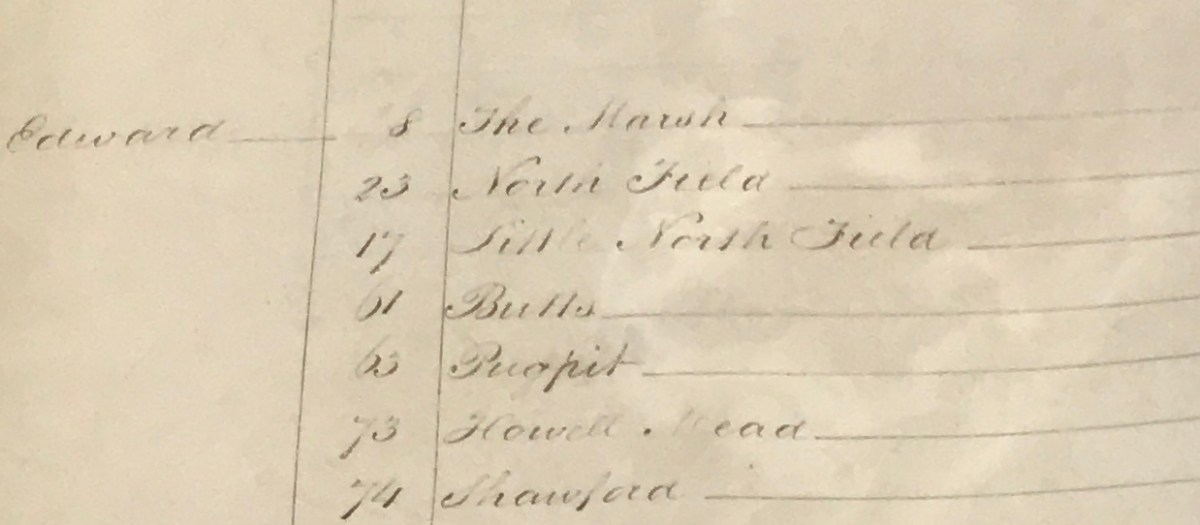 Edward 8 The Marsh
23 North Field
17 Little North Field
61 Butts
63 Pugpit
73 Howell Mead
74 Shawford